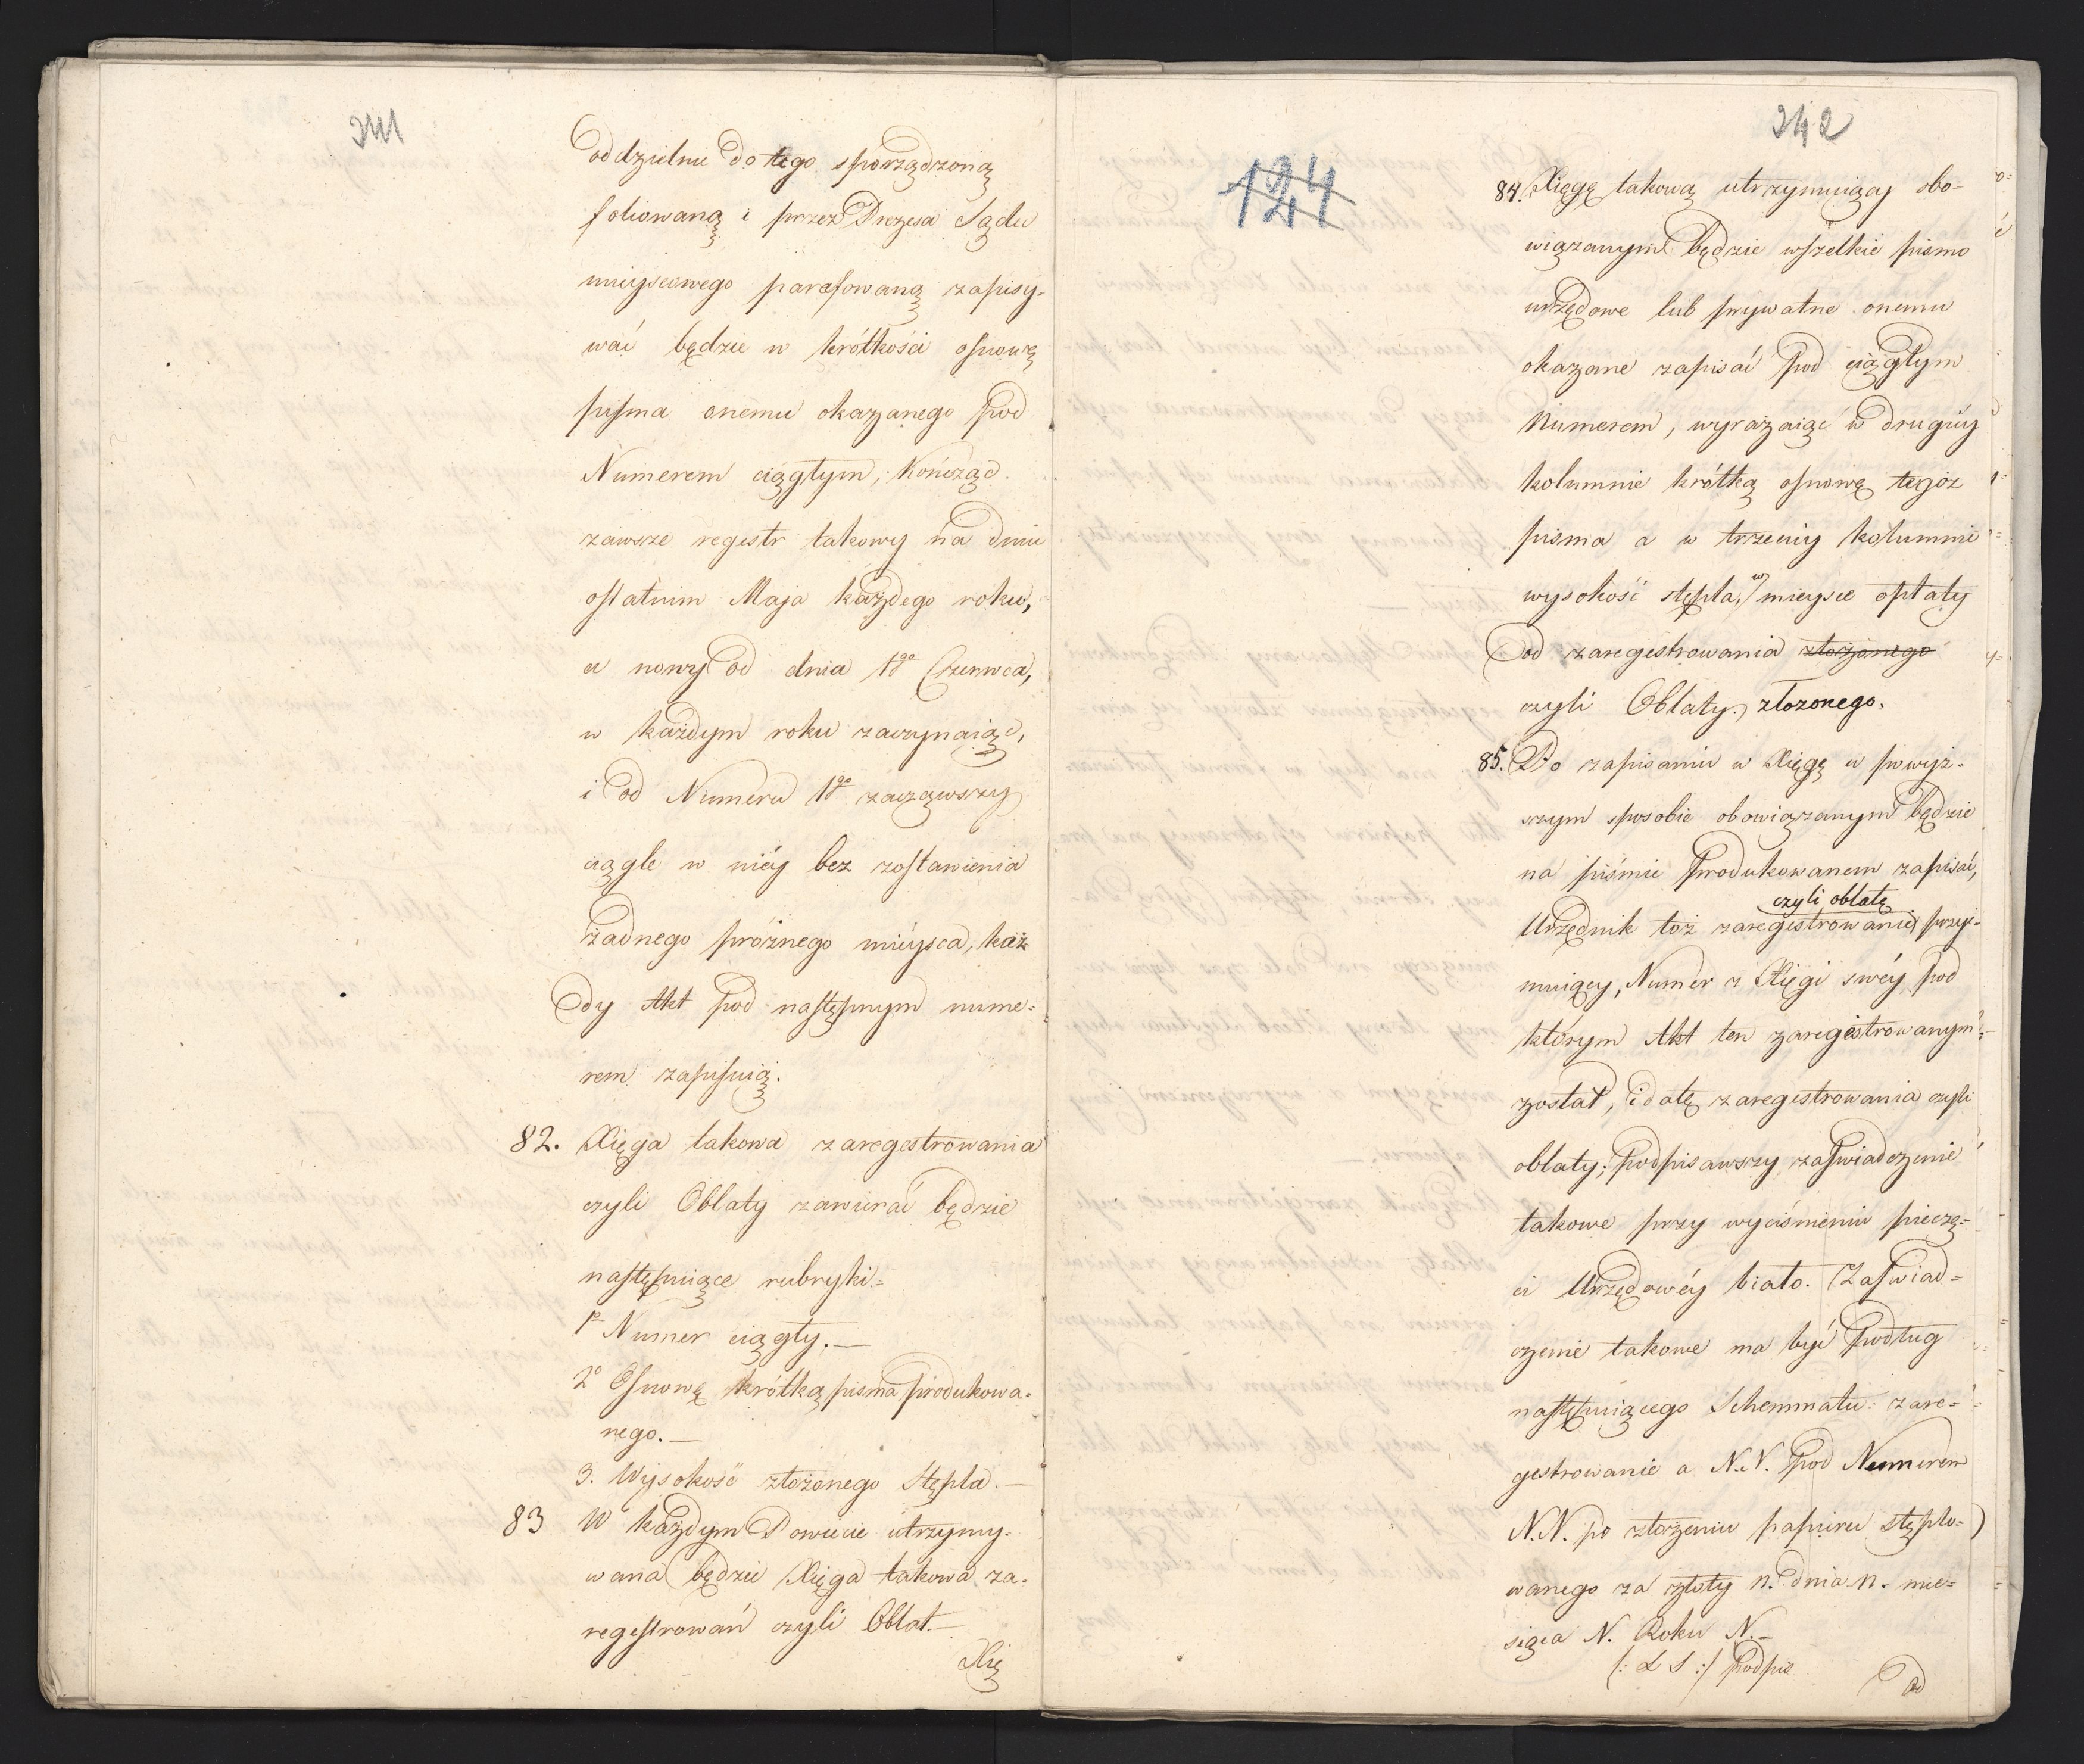 341
oddzielnie do tego sporządzoną
foliowaną i przez Prezesa Sądu
mieyscowego parafowaną zapisy-
wać będzie w krótkości osnowę
pisma onemu okazanego pod
Numerem ciągłym, Kończąc
zawsze regestr takowy na dniu
ostatnim Maja każdego roku,
a nowy od dnia 1go Czerwca,
w każdym roku zaczynaiąc,
i od Numeru 1go zacząwszy
ciągle w niéy bez zostawienia
żadnego próżnego mieysca, każ
dy Akt pod następnym nume-
rem zapisuią.
82. Xięga takowa zaregestrowania
czyli Oblaty zawierać będzie
następuiące rubryki=
1o Numer ciągły.—
2o Osnowę krótką pisma produkowa-
nego.—
3. Wysokość złożonego Stępla.—
83 W każdym Powiecie utrzymy-
wana będzie Xięga takowa za-
regestrowań czyli Oblat.—
Xię
342
124
84. Xięgę takową utrzymuiący obo-
wiązanym będzie wszelkie pismo
urzędowe lub prywatne onemu
okazane zapisać pod ciągłym
Numerem, wyrażaiąc w drugiéy
kolumnie krótką osnowę tegoż
pisma a w trzeciéy kolumnie
wysokość stępla, w mieysce opłaty
od zaregestrowania złożonego
czyli Oblaty, złożonego.
85. Po zapisaniu w Xięgę w powyż-
szym sposobie obowiązanym będzie
na piśmie produkowanem zapisać,
czyli oblatę
Urzędnik toż zaregestrowanie przyi-
muiący, Numer z Xięgi swéy pod
którym Akt ten zaregestrowanym
został, i datę zaregestrowania czyli
oblaty; podpisawszy zaświadczenie
takowe przy wyciśnieniu pieczę-
ci Urzędowéy biało. Zaświad-
czenie takowe ma być podług
następuiącego Schemmatu: zare-
gestrowanie a N.N. pod Numerem
N.N. po złożeniu papieru stęplo-
wanego za złoty n. dnia n. mie-
siąca N. Roku N.—
(: L S :) podpis
Od